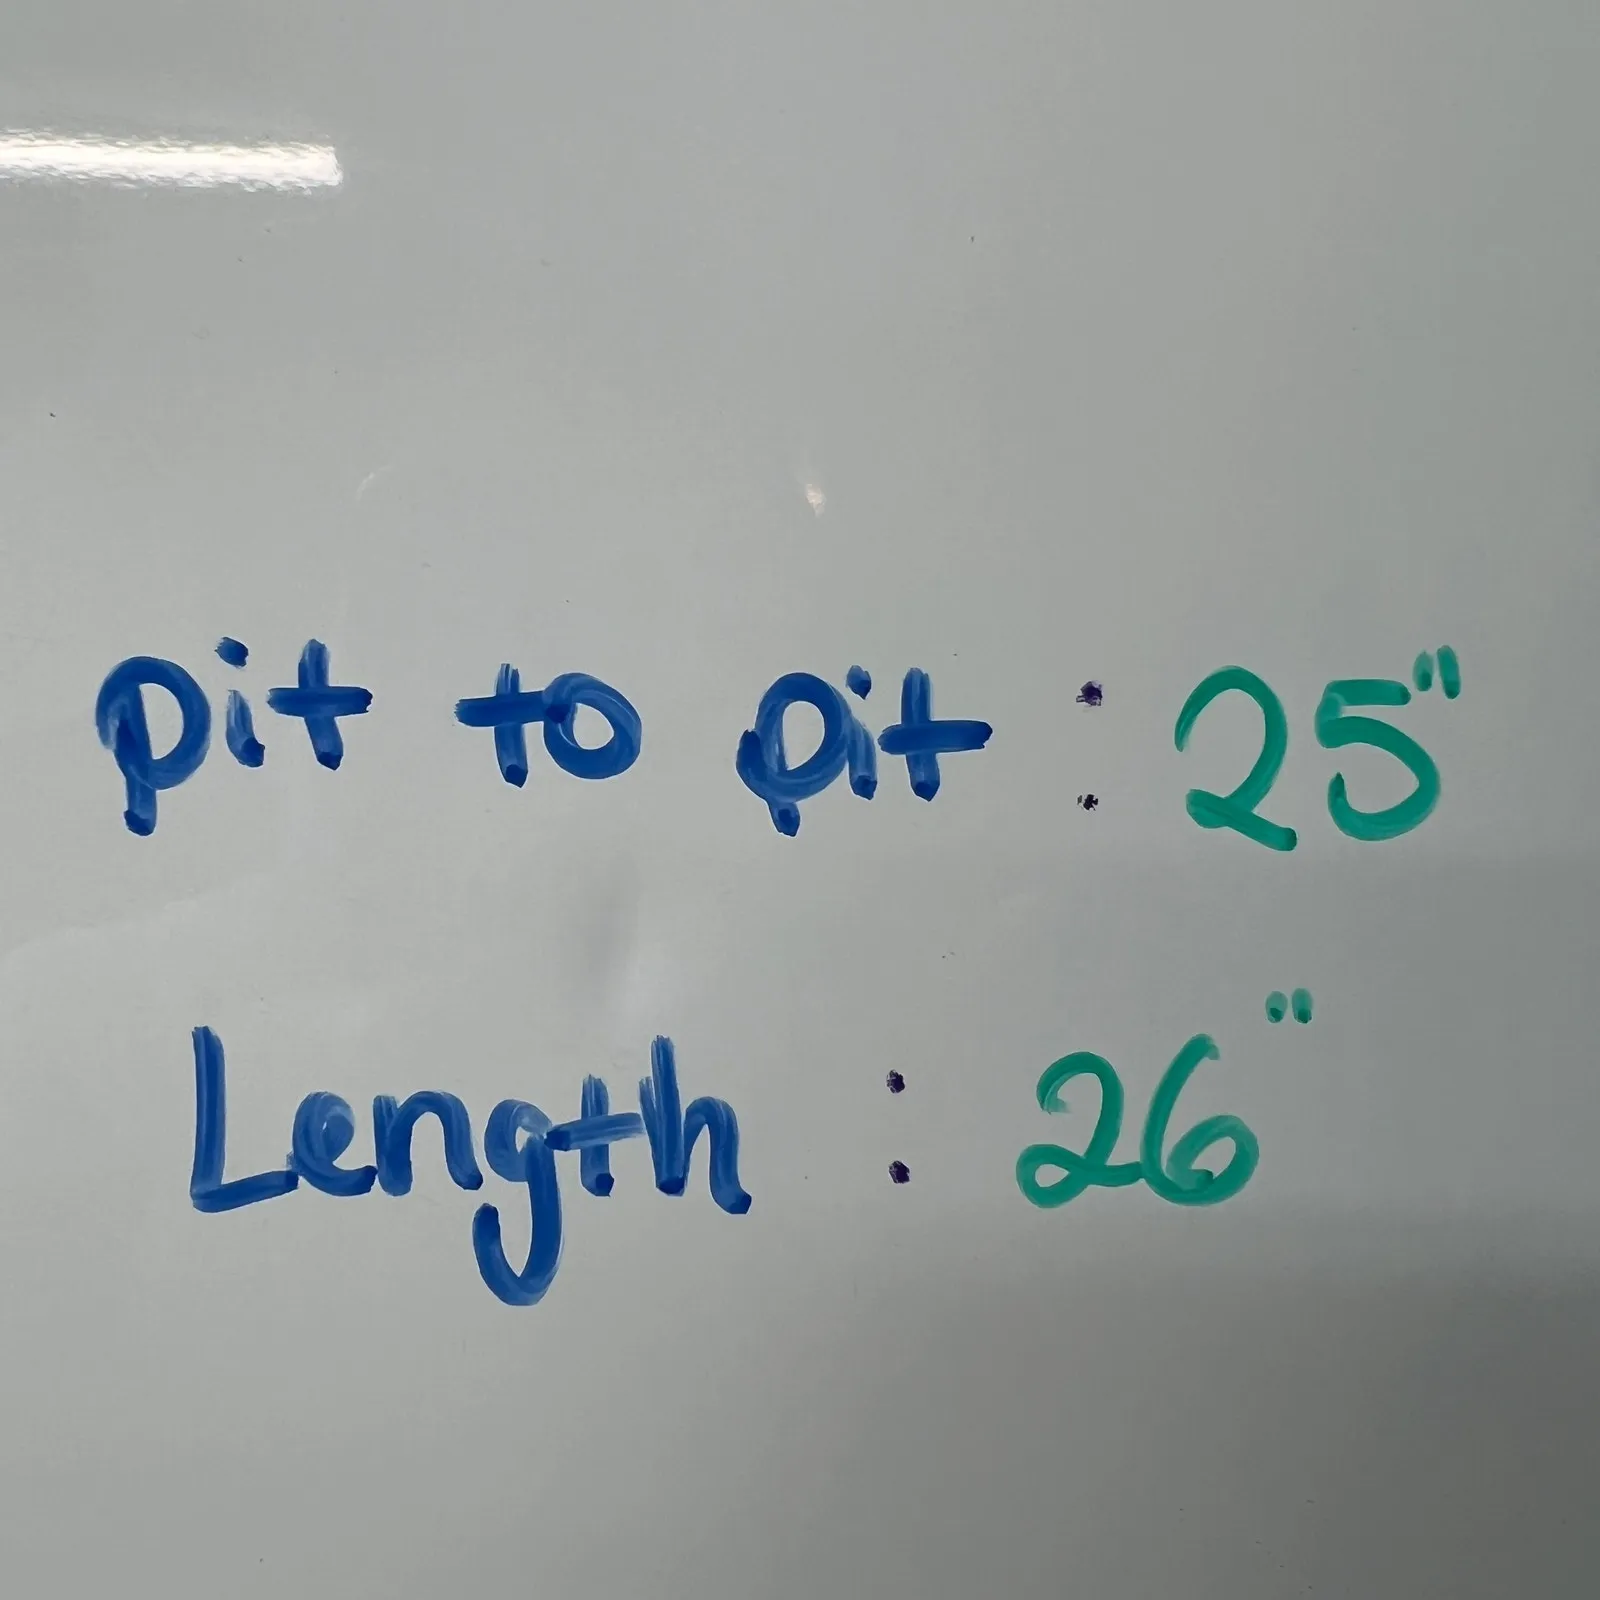 pit to pit : 25"
Length : 26"